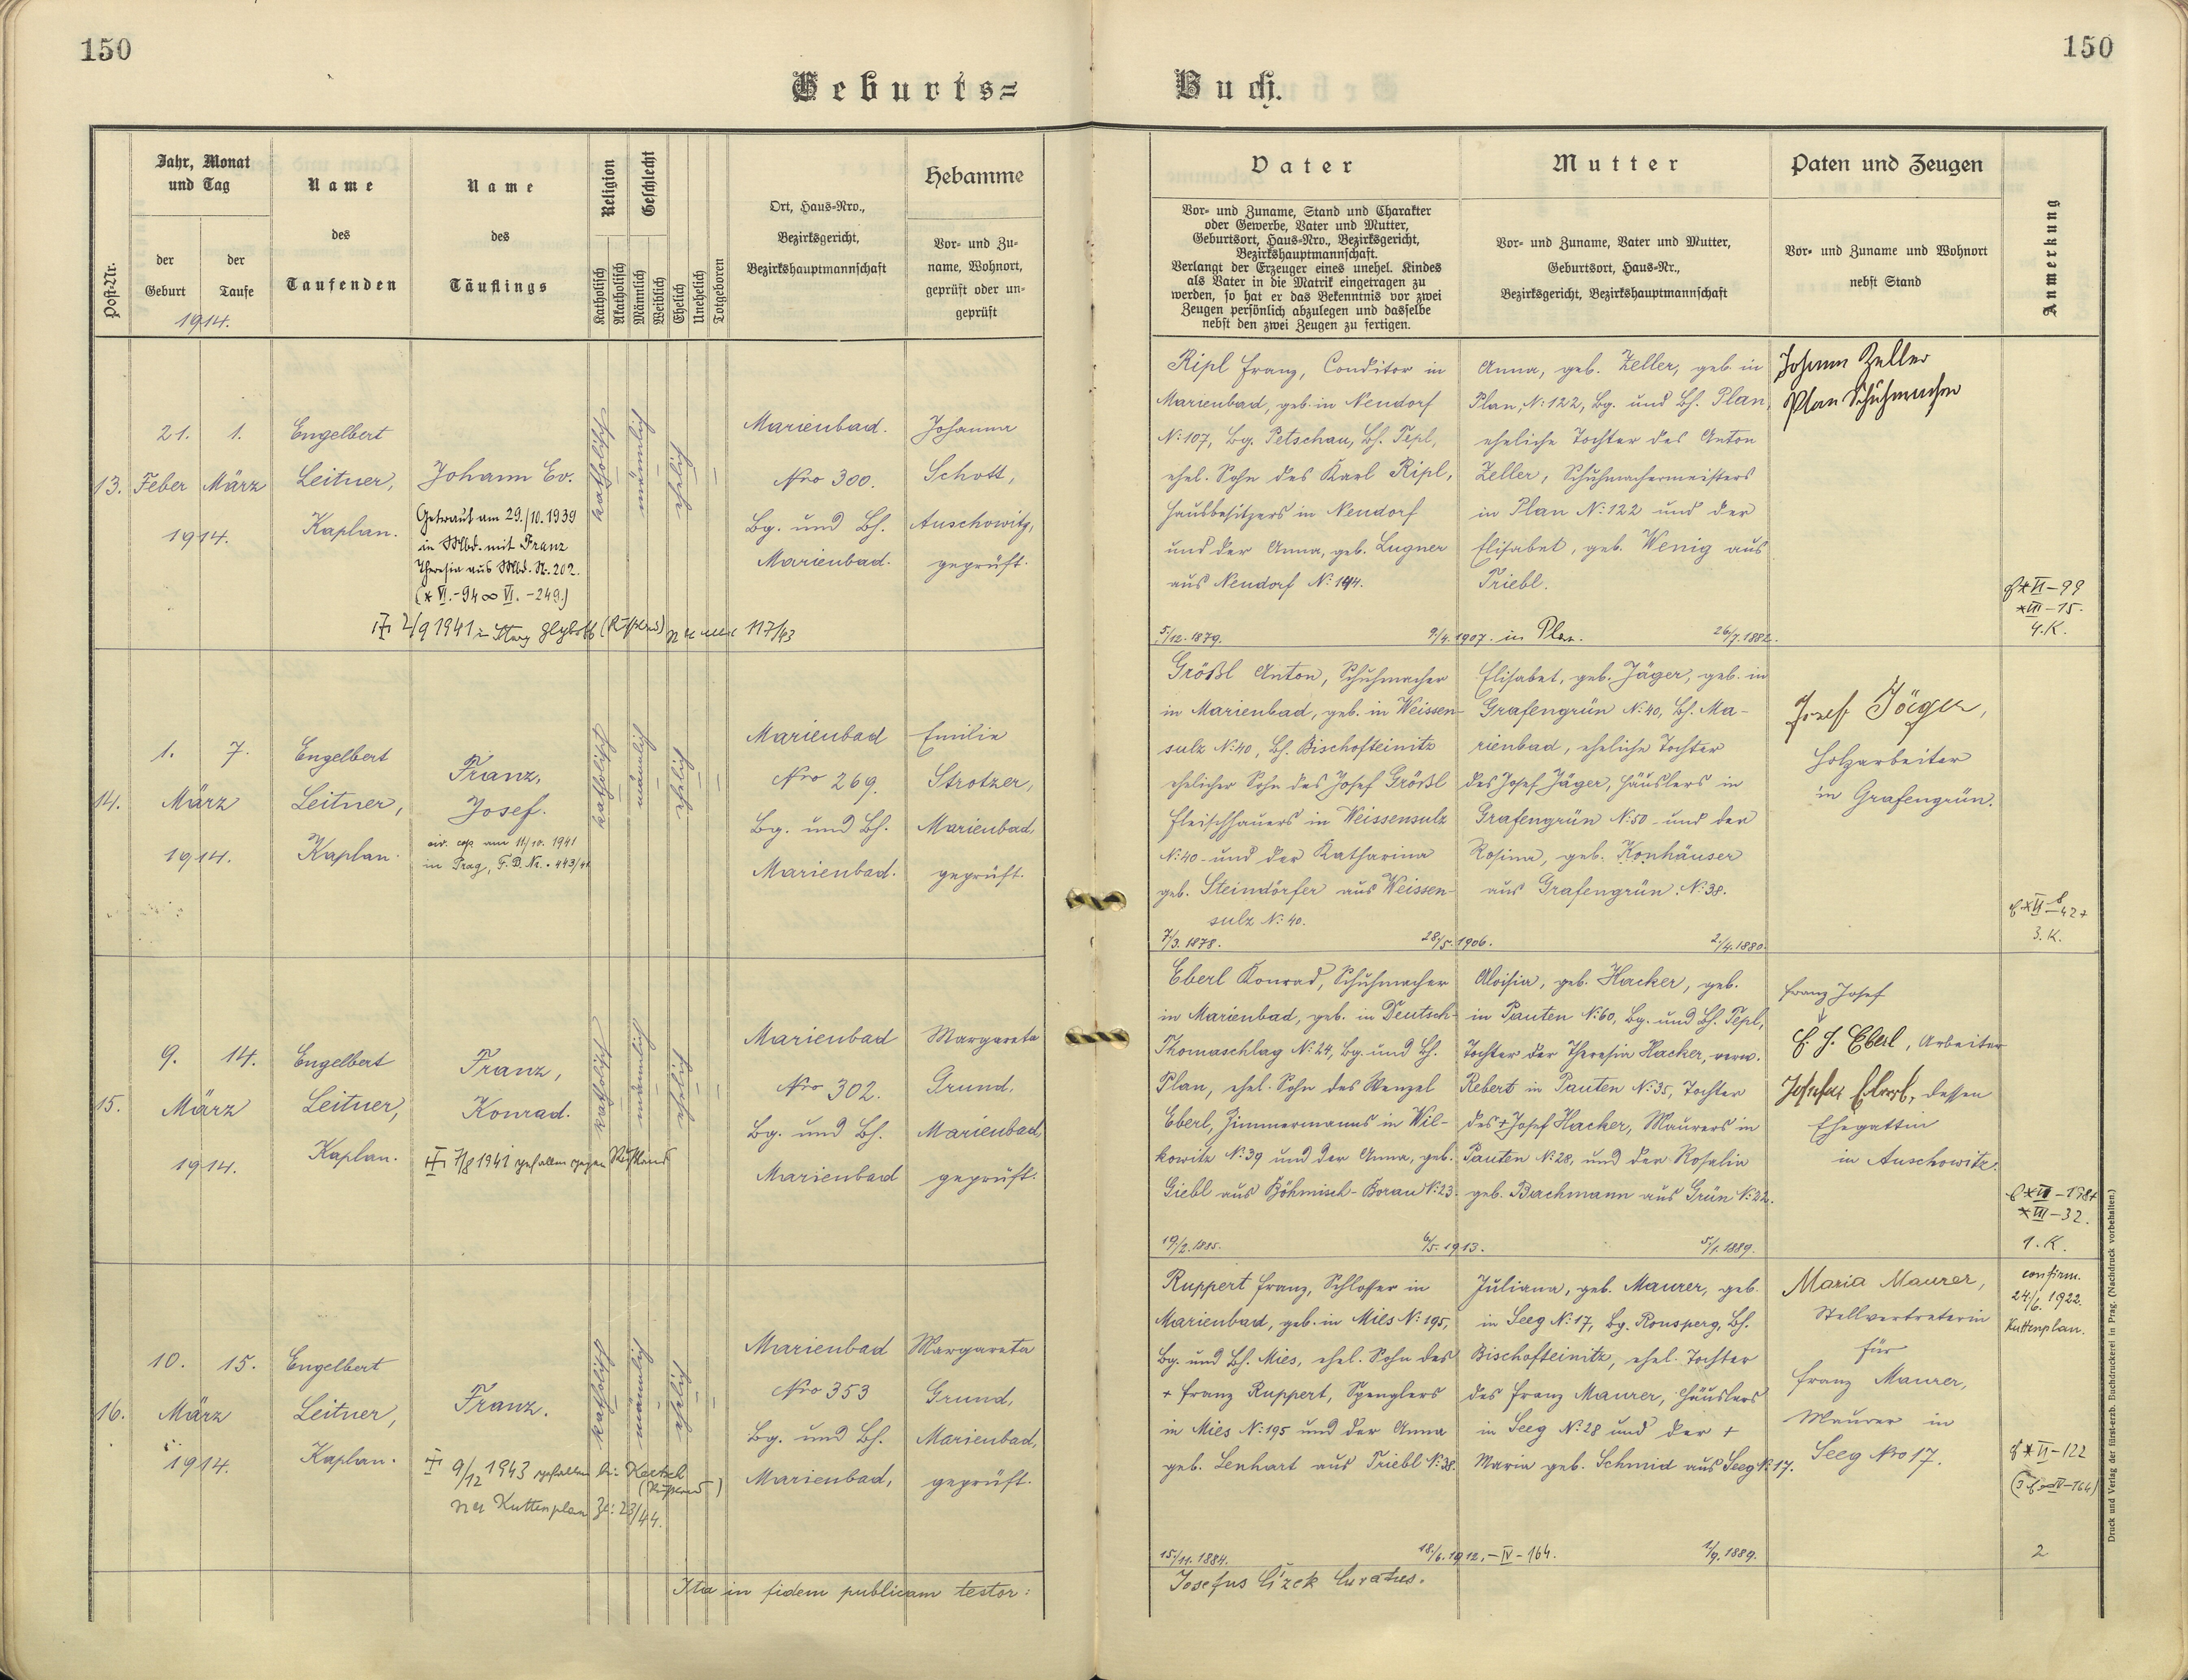 150
150
Geburts=
Buch.
Post-Nr.
Jahr, Monat
und Tag
der
Geburt
der
Taufe
1914.
Name
des
Taufenden
Name
des
Täuflings
Religion
Katholisch
Akatholisch
Geschlecht
Männlich
Weiblich
Ehelich
Unehelich
Totgeboren
Ort, Haus-Nro.,
Bezirksgericht,
Bezirkshauptmannschaft
Hebamme
Vor- und Zu-
name, Wohnort,
geprüft oder un-
geprüft
Vater
Vor- und Zuname, Stand und Charakter
oder Gewerbe, Vater und Mutter,
Geburtsort, Haus-Nro., Bezirksgericht,
Bezirkshauptmannschaft.
Verlangt der Erzeuger eines unehel. Kindes
als Vater in die Matrik eingetragen zu
werden, so hat er das Bekenntnis vor zwei
Zeugen persönlich abzulegen und dasselbe
nebst den zwei Zeugen zu fertigen.
Mutter
Vor- und Zuname, Vater und Mutter,
Geburtsort, Haus-Nr.,
Bezirksgericht, Bezirkshauptmannschaft
Paten und Zeugen
Vor- und Zuname und Wohnort
nebst Stand
Anmerkung
13.
21. 1.
Feber März
1914.
Engelbert
Leitner,
Kaplan.
Johann Ev.
Getraut am 29./10. 1939
in Mbd. mit Franz
Theresia aus Mbd. Nr. 202.
(* VI.-94 ∞ VI. -249.)
2/9 1941 in (Rußland) 117/43
katholisch
männlich
ehelich
Marienbad.
Nro 300.
Bg. und Bh.
Marienbad.
Johanna
Schott,
Auschowitz,
geprüft.
Ripl Franz, Conditor in
Marienbad, geb. in Neudorf
N: 107, Bg. Petschau, Bh. Tepl,
ehel. Sohn des Karl Ripl,
Hausbesitzers in Neudorf
und der Anna, geb. Lugner
aus Neudorf N: 144.
5/12. 1879.
9/4. 1907. in Plan.
Anna, geb. Zeller, geb. in
Plan, N: 122, Bg. und Bh. Plan,
eheliche Tochter des Anton
Zeller, Schuhmachermeisters
in Plan N: 122 und der
Elisabet, geb. Wenig aus
Triebl.
26/7. 1882.
Johann Zeller
Plan Schuhmacher
* VI-99
* III-15.
4. K.
14.
1. 7.
März
1914.
Engelbert
Leitner,
Kaplan.
Franz,
Josef.
civ. cop. am 11/10. 1941
in Prag, F. D. Nr. 443/41
katholisch
männlich
ehelich
Marienbad
Nro 269.
Bg. und Bh.
Marienbad.
Emilie
Strotzer,
Marienbad,
geprüft.
Größl Anton, Schuhmacher
in Marienbad, geb. in Weissen-
sulz N: 40, Bh. Bischofteinitz
ehelicher Sohn des Josef Größl
Fleischhauers in Weissensulz
N: 40 und der Katharina
geb. Steindörfer aus Weissen-
sulz N: 40.
7/3. 1878.
28/5. 1906.
Elisabet, geb. Jäger, geb. in
Grafengrün N: 40, Bh. Ma-
rienbad, eheliche Tochter
des Josef Jäger, Häuslers in
Grafengrün N: 50 und der
Rosina, geb. Konhäuser
aus Grafengrün N: 38.
2/4. 1880.
Josef Jäger,
Holzarbeiter
in Grafengrün.
3. K.
15.
9. 14.
März
1914.
Engelbert
Leitner,
Kaplan.
Franz,
Konrad.
7/8 1941 gefallen gegen Rußland
katholisch
männlich
ehelich
Marienbad
Nro 302.
Bg. und Bh.
Marienbad
Margareta
Grund,
Marienbad,
geprüft.
Eberl Konrad, Schuhmacher
in Marienbad, geb. in Deutsch-
Thomaschlag N: 24, Bg. und Bh.
Plan, ehel. Sohn des Wenzel
Eberl, Zimmermanns in Wil-
kowitz N: 39 und der Anna, geb.
Giebl aus Böhmisch-Borau N: 23.
19/2. 1885.
6/5. 1913.
Aloisia, geb. Hacker, geb.
in Pauten N: 60, Bg. und Bh. Tepl,
Tochter der Theresia Hacker, verw.
Rebert in Pauten N: 35, Tochter
des + Josef Hacker, Maurers in
Pauten N: 28, und der Rosalia
geb. Bachmann aus Grün N: 22.
5/1. 1889.
Franz Josef
F. J. Eberl, Arbeiter
Josefa Eberl, dessen
Ehegattin
in Auschowitz.
* III-32.
1. K.
16.
10. 15.
März
1914.
Engelbert
Leitner,
Kaplan.
Franz.
9/12 1943 gefallen bei
(Rußland)
Kuttenplan Zl: 23/44.
katholisch
männlich
ehelich
Marienbad
Nro 353
Bg. und Bh.
Marienbad,
Margareta
Grund,
Marienbad,
geprüft.
Ruppert Franz, Schlosser in
Marienbad, geb. in Mies N: 195,
Bg. und Bh. Mies, ehel. Sohn des
+ Franz Ruppert, Spenglers
in Mies N: 195 und der Anna
geb. Lenhart aus Triebl N: 38.
15/11. 1884.
18/6. 1912. - IV - 164.
Juliana, geb. Maurer, geb.
in Seeg N: 17, Bg. Ronsperg, Bh.
Bischofteinitz, ehel. Tochter
des Franz Maurer, Häuslers
in Seeg N: 28 und der +
Maria geb. Schmid aus Seeg N: 17.
1/9. 1889.
Maria Maurer,
Stellvertreterin
für
Franz Maurer,
Maurer in
Seeg Nro 17.
confirm.
24/6. 1922.
Kuttenplan.
* VI-122
2
Ita in fidem publicam testor:
Josefus Cížek Curatus.
Druck und Verlag der fürst-erzb. Buchdruckerei in Prag. (Nachdruck vorbehalten.)